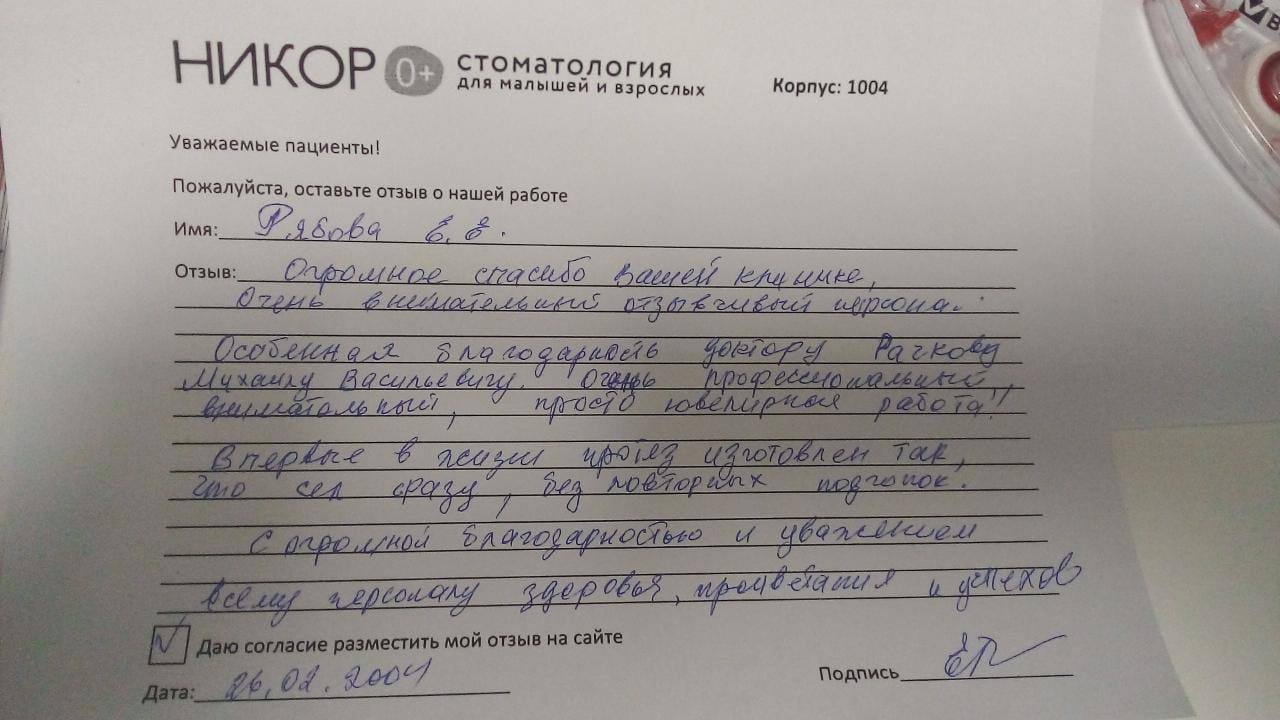 НИКОР 0+ стоматология
для малышей и взрослых
Корпус: 1004
Уважаемые пациенты!
Пожалуйста, оставьте отзыв о нашей работе
Имя: Рябова Е. Е.
Отзыв: Огромное спасибо Вашей клинике,
Очень внимательный отзывчивый персонал.
Особенная благодарность доктору Рачкову
Михаилу Васильевичу. Очень профессиональный,
внимательный, просто ювелирная работа!!
Впервые в жизни протез изготовлен так,
что сел сразу, без повторных подгонок.
С огромной благодарностью и уважением
всему персоналу здоровья, процветания и успехов
Даю согласие разместить мой отзыв на сайте
Дата: 26.02.2004
Подпись ЕР